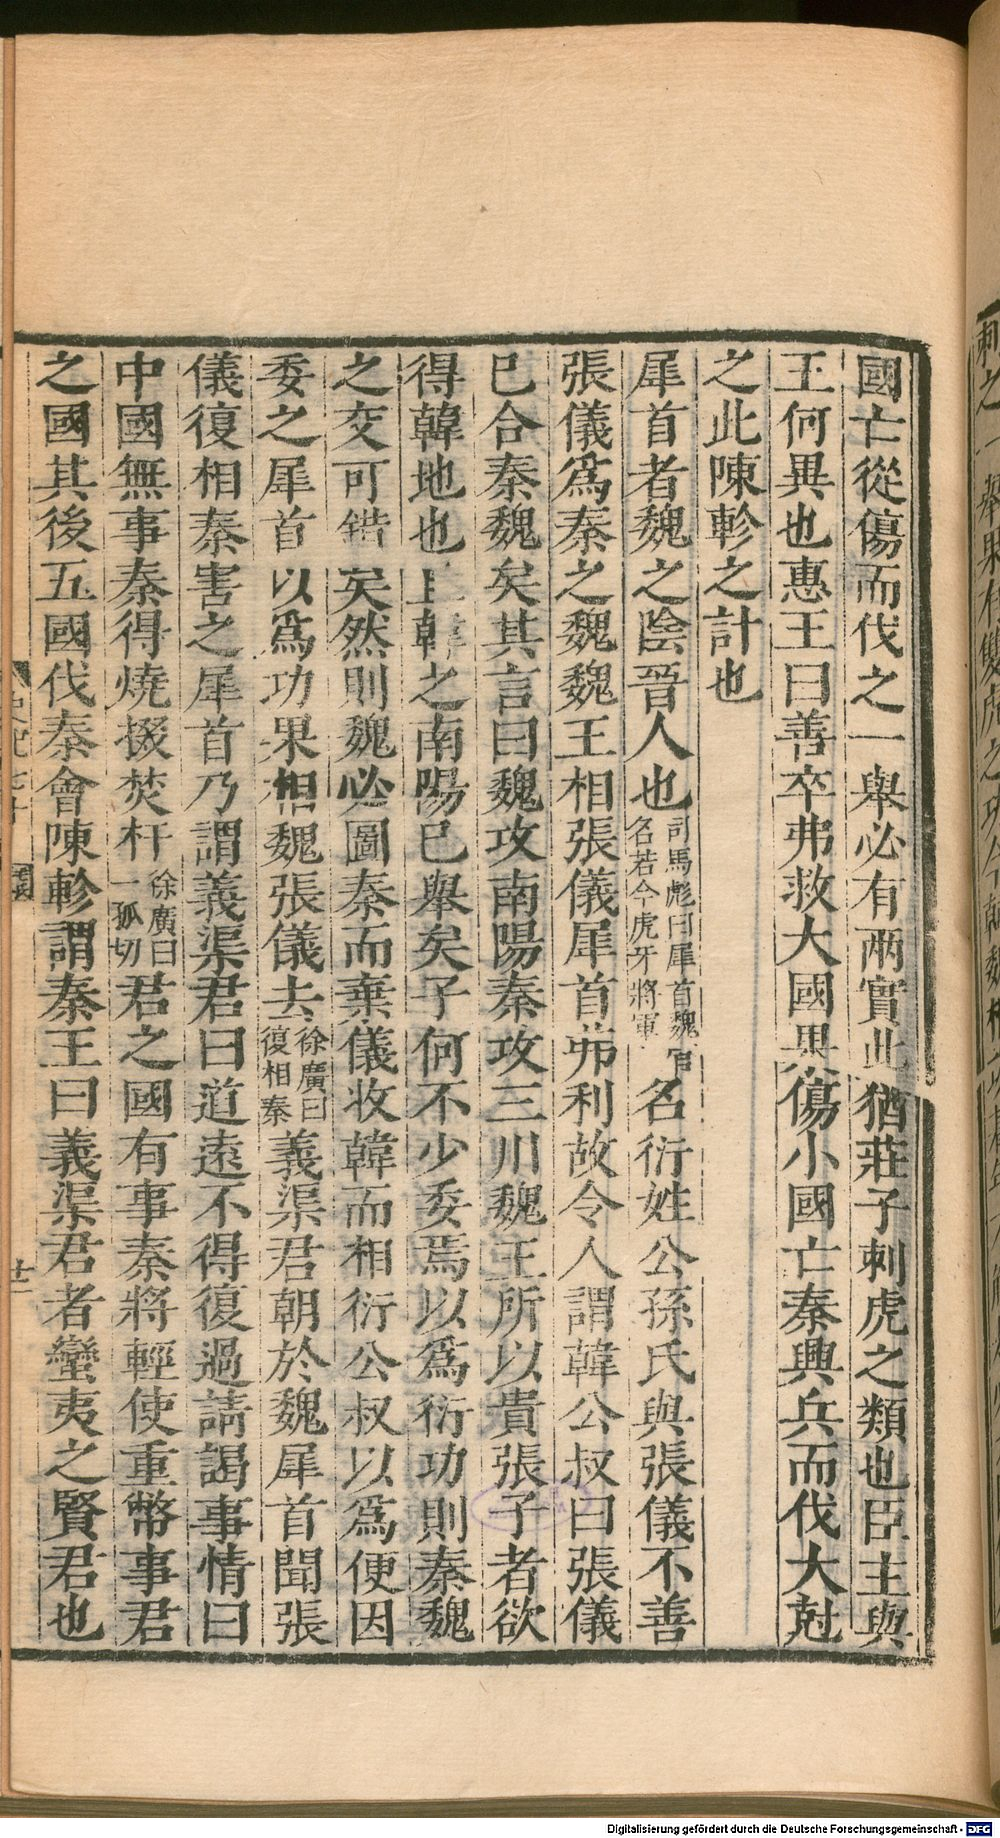 國亡從傷而伐之一舉必有兩實此猶莊子刺虎之類也臣主與
王何異也惠王曰善卒弗救大國果傷小國亡秦興兵而伐大尅
之此陳軫之計也
犀首者魏之陰晉人也司馬彪曰犀首魏官名若今虎牙將軍名衍姓公孫氏與張儀不善
張儀爲秦之魏魏王相張儀犀首弗利故令人謂韓公叔曰張儀
已合秦魏矣其言曰魏攻南陽秦攻三川魏王所以貴張子者欲
得韓地也且韓之南陽已舉矣子何不少委焉以爲衍功則秦魏
之交可錯矣然則魏必圖秦而棄儀收韓而相衍公叔以爲便因
委之犀首以爲功果相魏張儀去徐廣曰復相秦義渠君朝於魏犀首聞張
儀復相秦害之犀首乃謂義渠君曰道遠不得復過請謁事情曰
中國無事秦得燒掇焚杅徐廣曰一孤切君之國有事秦將輕使重幣事君
之國其後五國伐秦會陳軫謂秦王曰義渠君者蠻夷之賢君也
史記七十
十二
Digitalisierung gefördert durch die Deutsche Forschungsgemeinschaft - DFG